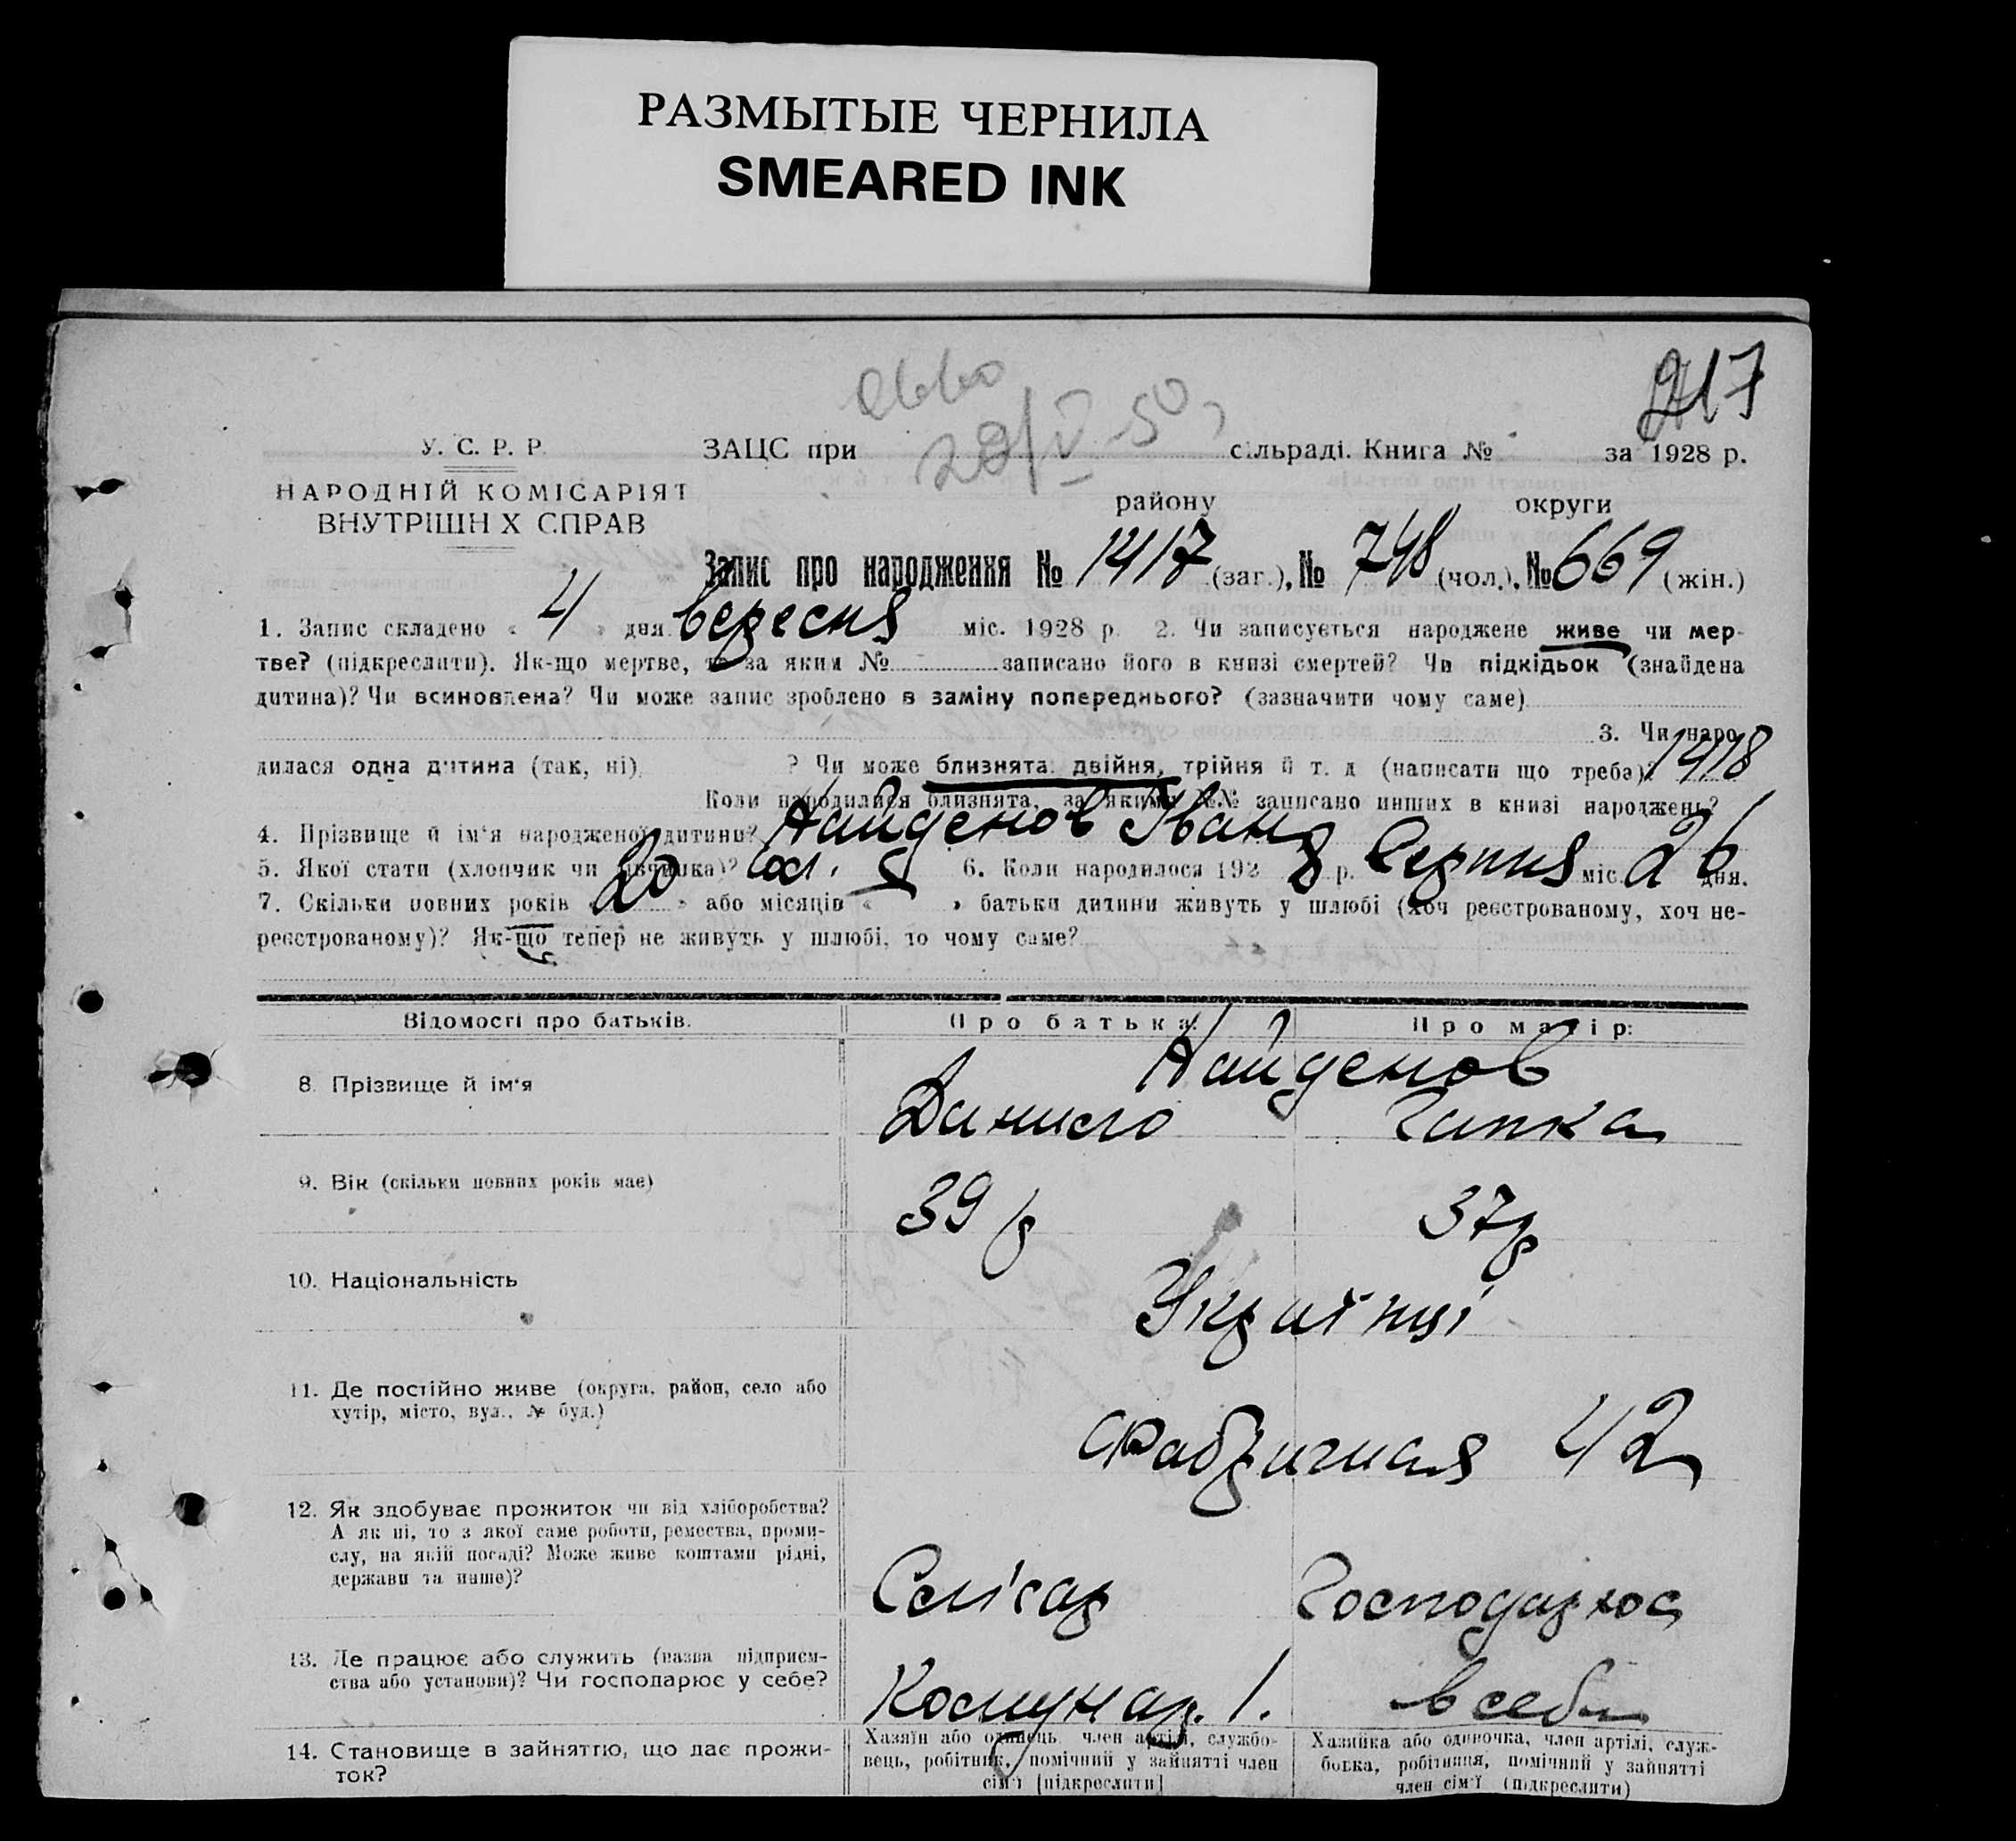 РАЗМЫТЫЕ ЧЕРНИЛА
SMEARED INK
217
29/V 50
У. С. Р. Р.
ЗАЦС при сільраді. Книга № за 1928 р.
НАРОДНІЙ КОМІСАРІЯТ
ВНУТРІШН Х СПРАВ
району округи
Запис про народження № 1417 (заг.), № 748 (чол.), № 669 (жін.)
1. Запис складено « 4 » дня вересня міс. 1928 р. 2. Чи записується народжене живе чи мер-
тве? (підкреслити). Як-що мертве, то за яким № записано його в книзі смертей? Чи підкідьок (знайдена
дитина)? Чи всиновлена? Чи може запис зроблено в заміну попереднього? (зазначити чому саме)
3. Чи наро-
дилася одна дитина (так, ні) ? Чи може близнята: двійня, трійня й т. д (написати що треба)? 1418
Коли народилися близнята, за якими №№ записано инших в книзі народжень?
4. Прізвище й ім'я народженої дитини? Найденов Іван
5. Якої стати (хлопчик чи дівчинка)? чол. 6. Коли народилося 192 8 р. Серпня міс. 26 дня.
7. Скільки повних років « 20 » або місяців « » батьки дитини живуть у шлюбі (хоч реєстрованому, хоч не-
реєстрованому)? Як-що тепер не живуть у шлюбі, то чому саме?
Відомості про батьків. Про батька: Про матір:
Найденов
8. Прізвище й ім'я Данило Гапка
9. Вік (скільки повних років має) 39 р 37 р
10. Національність Українці
11. Де постійно живе (округа, район, село або
хутір, місто, вул., № буд.)
Фабричная 42
12. Як здобуває прожиток чи від хліборобства?
А як ні, то з якої саме роботи, ремества, проми-
слу, на якій посаді? Може живе коштами рідні,
держави та инше)?
Слісар Господарює
13. Де працює або служить (назва підприєм-
ства або установи)? Чи господарює у себе?
Комунар. 1. в себе
14. Становище в зайняттю, що дає прожи-
ток?
Хазяїн або одинець, член артілі, службо-
вець, робітник, помічний у зайнятті член
сім'ї [підкреслити]
Хазяйка або одиночка, член артілі, служ-
бовка, робітниця, помічний у зайнятті
член сім'ї (підкреслити)